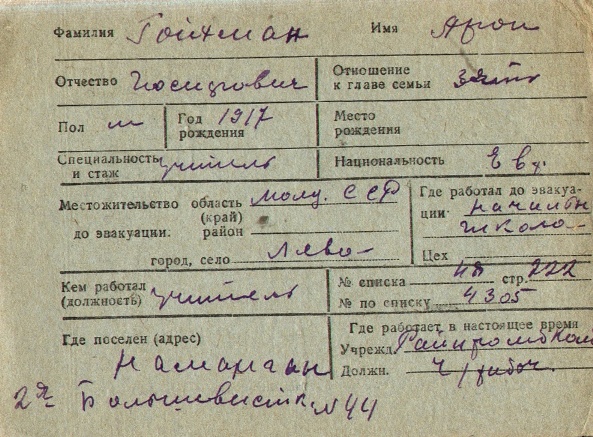 Фамилия Гойхман Имя Арон
Отчество Иосифович Отношение к главе семьи зять
Пол м Год рождения 1917 Место рождения
Специальность и стаж учитель Национальность Евр.
Местожительство область (край) молд. ССР
до эвакуации. район
город, село
Где работал до эвакуации
школа
Цех
Кем работал (должность) учитель
№ списка 48 стр. 222
№ по списку 4305
Где поселен (адрес)
Наманган
2я Большевистк. №44
Где работает в настоящее время
Учрежд.
Должн.